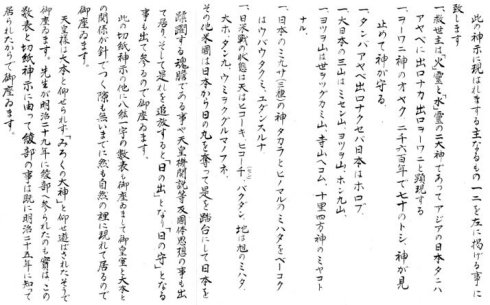 此の神示に現はれまする主なるもの一二を左に掲げる事に
致します
一、救世主は火霊と水霊の二大神であってアジアの日本タニハ
アヤベに出口ナカ出口ヲーワニと顕現する
一、ヲーワニ神のオヤク二千六百年で七十のトシ、神が見
止めて神が守る。
一、タンバアヤベ出口ナクセバ日本はホロブ。
一、大日本の三山はミセン山、ヨツヲ山、ホン九山、
一、天は世ヨツグカミ山、寺山ヘコム、十里四方神のミヤコト
ナル。
一、日本のミクサ(三種)の神タカラとヒノマルのミハタをベーコク
はウバウタクミ、ユケンスルナ
一、日米戦の状態は天はヒコーキ、ヒコーチ、バクダン、地は旭のミハタ、
大ホ、タンク、ウミヲクグルマルノフネ、
その他米国は日本から日の丸を奪って是を踏台にして日本を
蹂躙する魂膽である事や天皇機関説等反国体思想の事も出
て居り、そして是れを追放すると「日の出」となり「日の守」となる
事も出て参るので御座ゐます。
此の切紙神示の他に八紘一宇の数表も御座ゐまして御皇室と大本と
の関係が針でつく隙も無いまでに然も自然の裡に現れて居るので
御座ゐます。
天皇様は大本と仰せられず「みろくの大神」と仰せ遊ばされたそうで
御座ゐます。先生が明治二十九年に綾部へ参られたのも實はこの
数表と切紙神示に由って綾部の事は既に明治二十五年に知って
居られたからで御座ゐます。